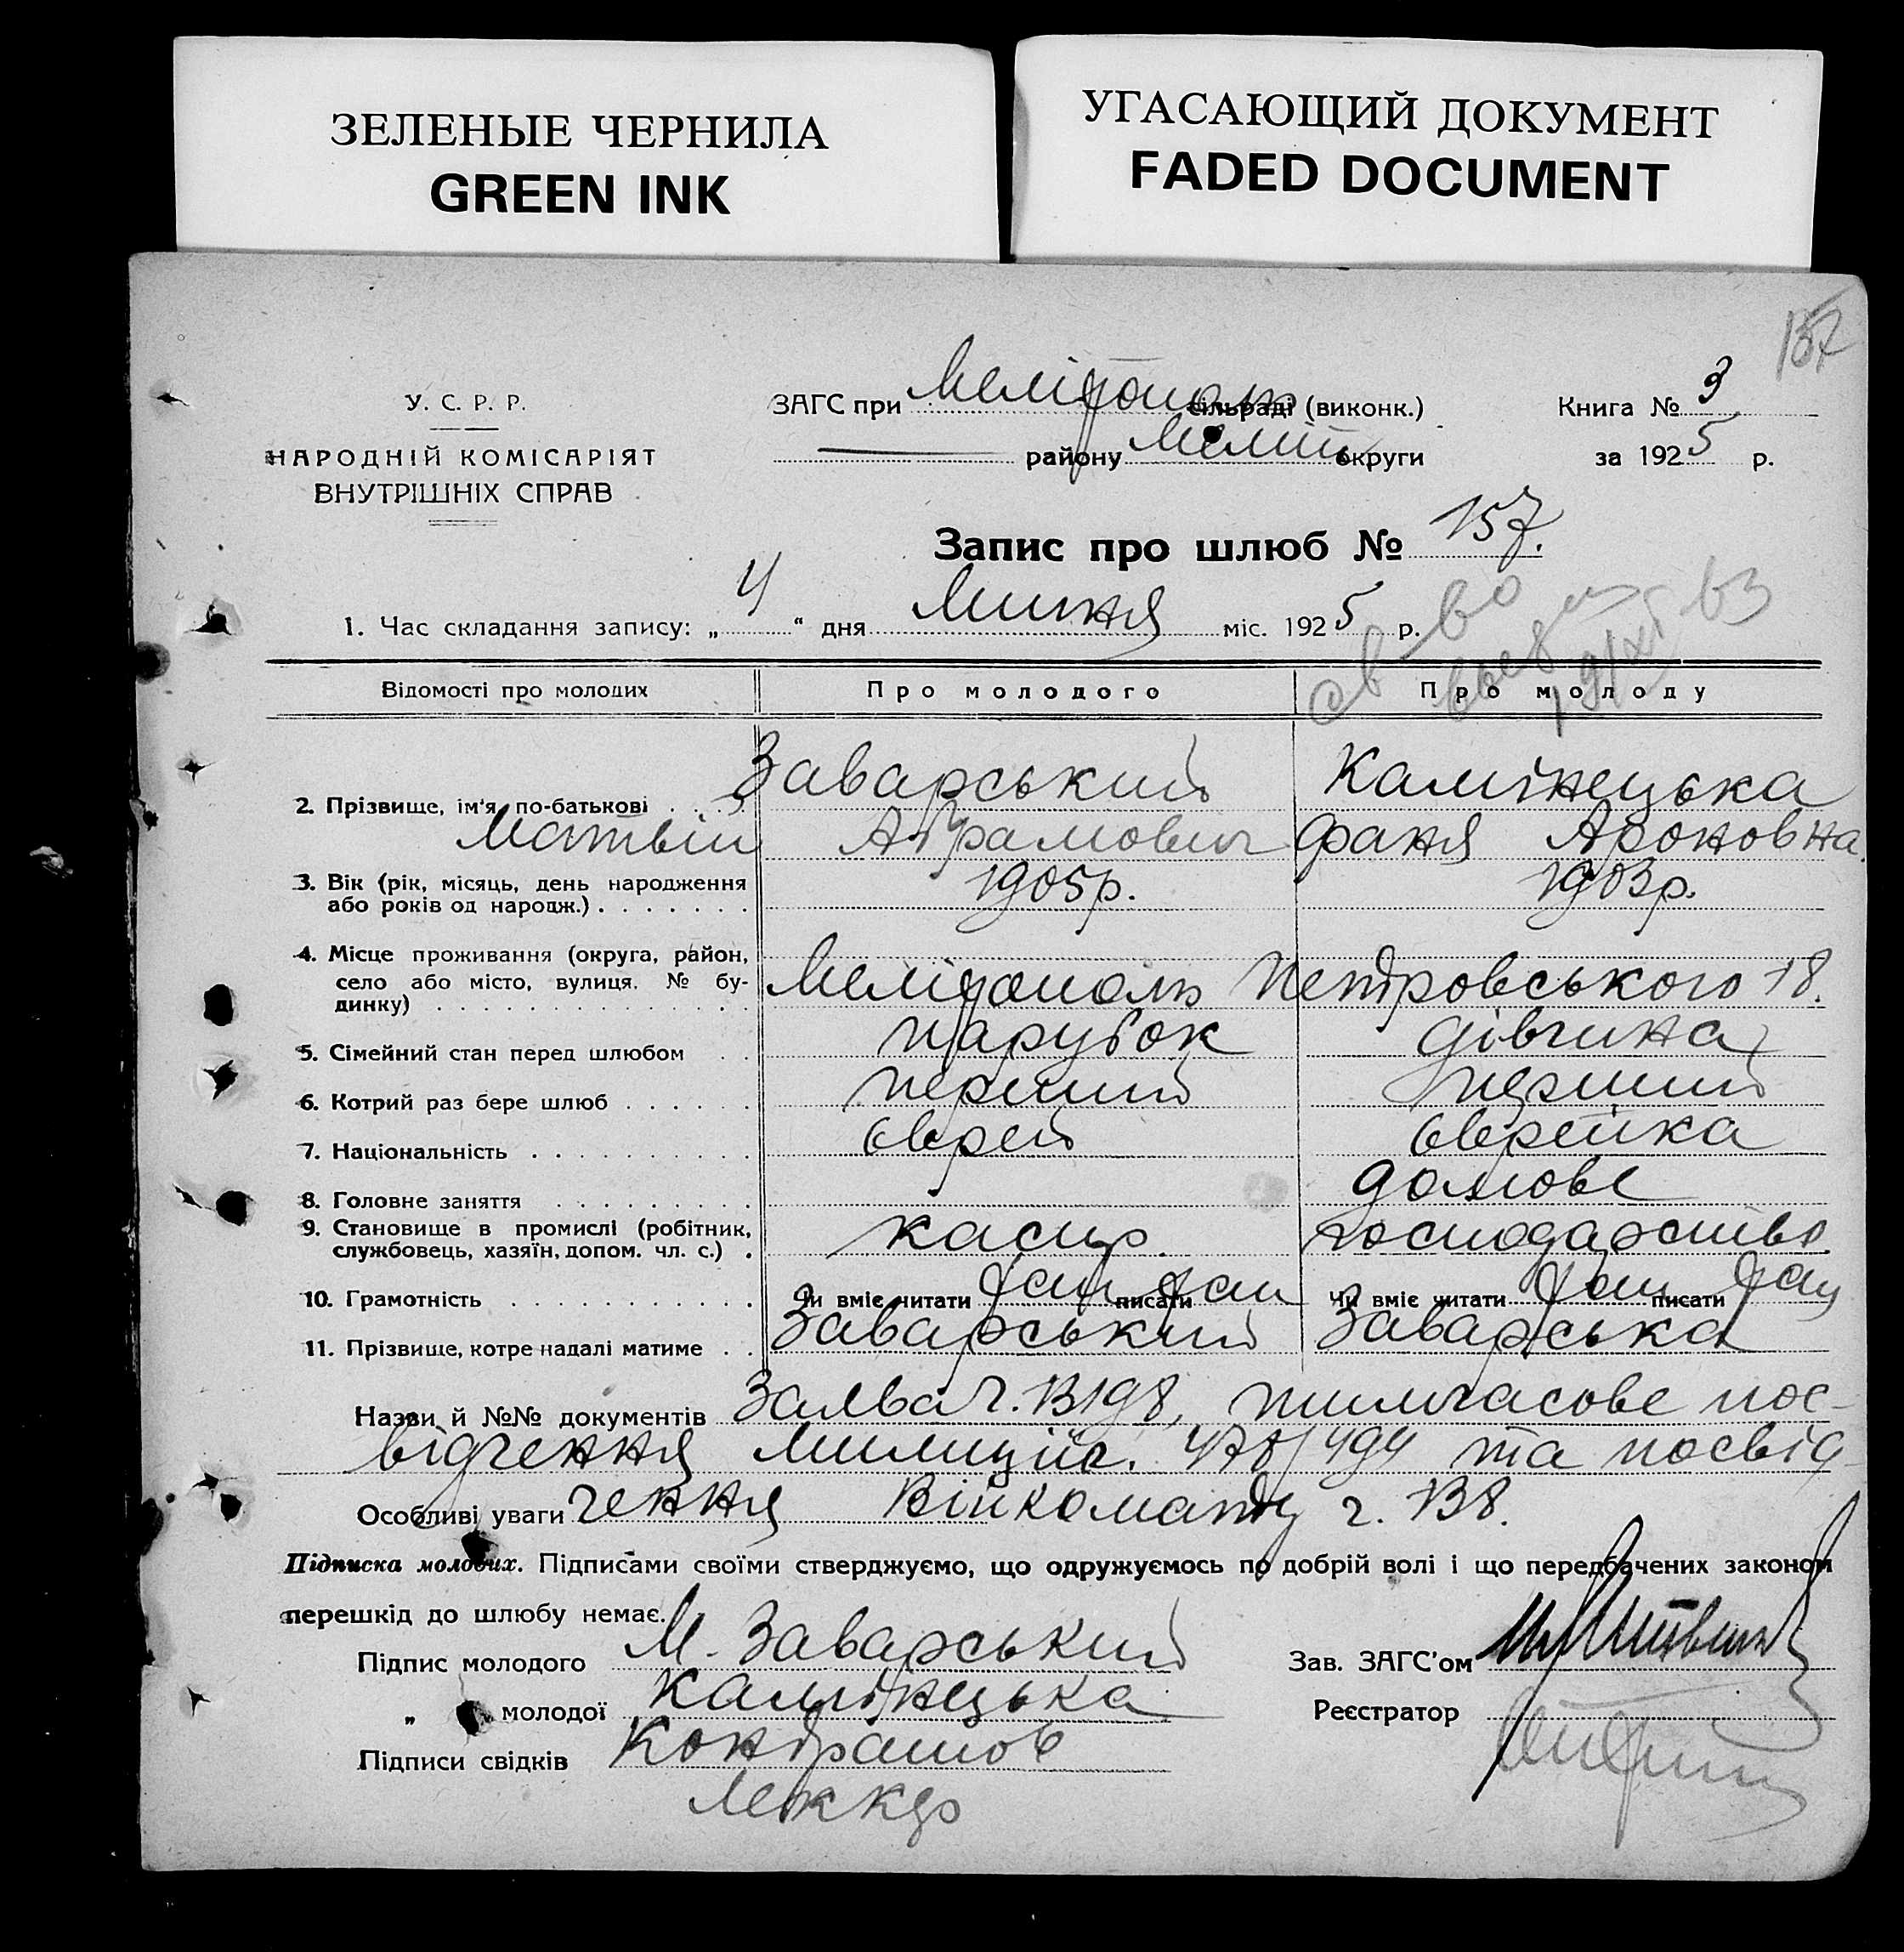 ЗЕЛЕНЫЕ ЧЕРНИЛА
GREEN INK
УГАСАЮЩИЙ ДОКУМЕНТ
FADED DOCUMENT
157
У. С. Р. Р.
НАРОДНІЙ КОМІСАРІЯТ
ВНУТРІШНІХ СПРАВ
ЗАГС при Мелітополь сільраді (виконк.)
району Меліт округи
Книга № 3
за 1925 р.
Запис про шлюб № 157.
1. Час складання запису: „ 4 “ дня Липня міс. 1925 р.
Відомості про молодих Про молодого Про молоду
Заварський Камінецька
2. Прізвище, ім'я, по-батькові . . . .
Матвій Абрамович Фаня Ароновна.
3. Вік (рік, місяць, день народження 1905р. 1903р.
або років од народж.) . . . . . . .
4. Місце проживання (округа, район,
село або місто, вулиця, № бу- Мелітополь Петровського 18.
динку) . . . . . . . . . . . . . .
5. Сімейний стан перед шлюбом . . парубок дівчина
6. Котрий раз бере шлюб . . . . . . перший перший
7. Національність . . . . . . . . . . єврей єврейка
8. Головне заняття . . . . . . . . . домове
9. Становище в промислі (робітник, касир. господарство.
службовець, хазяїн, допом. чл. с.) .
10. Грамотність . . . . . . . . . . . . Чи вміє читати писати Чи вміє читати писати
11. Прізвище, котре надалі матиме . . Заварський Заварська
Назви й №№ документів ч. тимчасове пос-
відчення та посвід-
Особливі уваги чення Війкомату ч.
Підписка молодих. Підписами своїми стверджуємо, що одружуємось по добрій волі і що передбачених законом
перешкід до шлюбу немає.
Підпис молодого М. Заварський
Зав. ЗАГС'ом
„ молодої Камінецька
Реєстратор
Підписи свідків Кондрашов